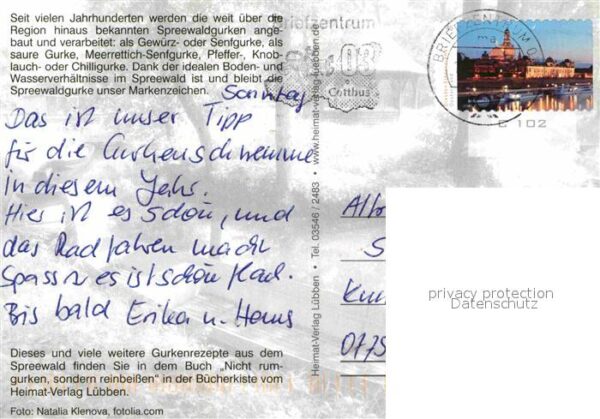 Seit vielen Jahrhunderten werden die weit über die
Region hinaus bekannten Spreewaldgurken ange-
baut und verarbeitet: als Gewürz- oder Senfgurke, als
saure Gurke, Meerrettich-Senfgurke, Pfeffer-, Knob-
lauch- oder Chilligurke. Dank der idealen Boden- und
Wasserverhältnisse im Spreewald ist und bleibt die
Spreewaldgurke unser Markenzeichen.
Sonntag
Das ist unser Tipp
für die Gurkenschwemme
in diesem Jahr.
Hier ist es schön, und
das Radfahren macht
Spass es ist schön flach.
Bis bald Erika u. Hans
Dieses und viele weitere Gurkenrezepte aus dem
Spreewald finden Sie in dem Buch „Nicht rum-
gurken, sondern reinbeißen" in der Bücherkiste vom
Heimat-Verlag Lübben.
Foto: Natalia Klenova, fotolia.com
Heimat-Verlag Lübben • Tel. 03546 / 2483 • www.heimat-verlag-luebben.de
Briefzentrum
03
Cottbus
BRIEFZENTRUM 0
E 102
privacy protection
Datenschutz